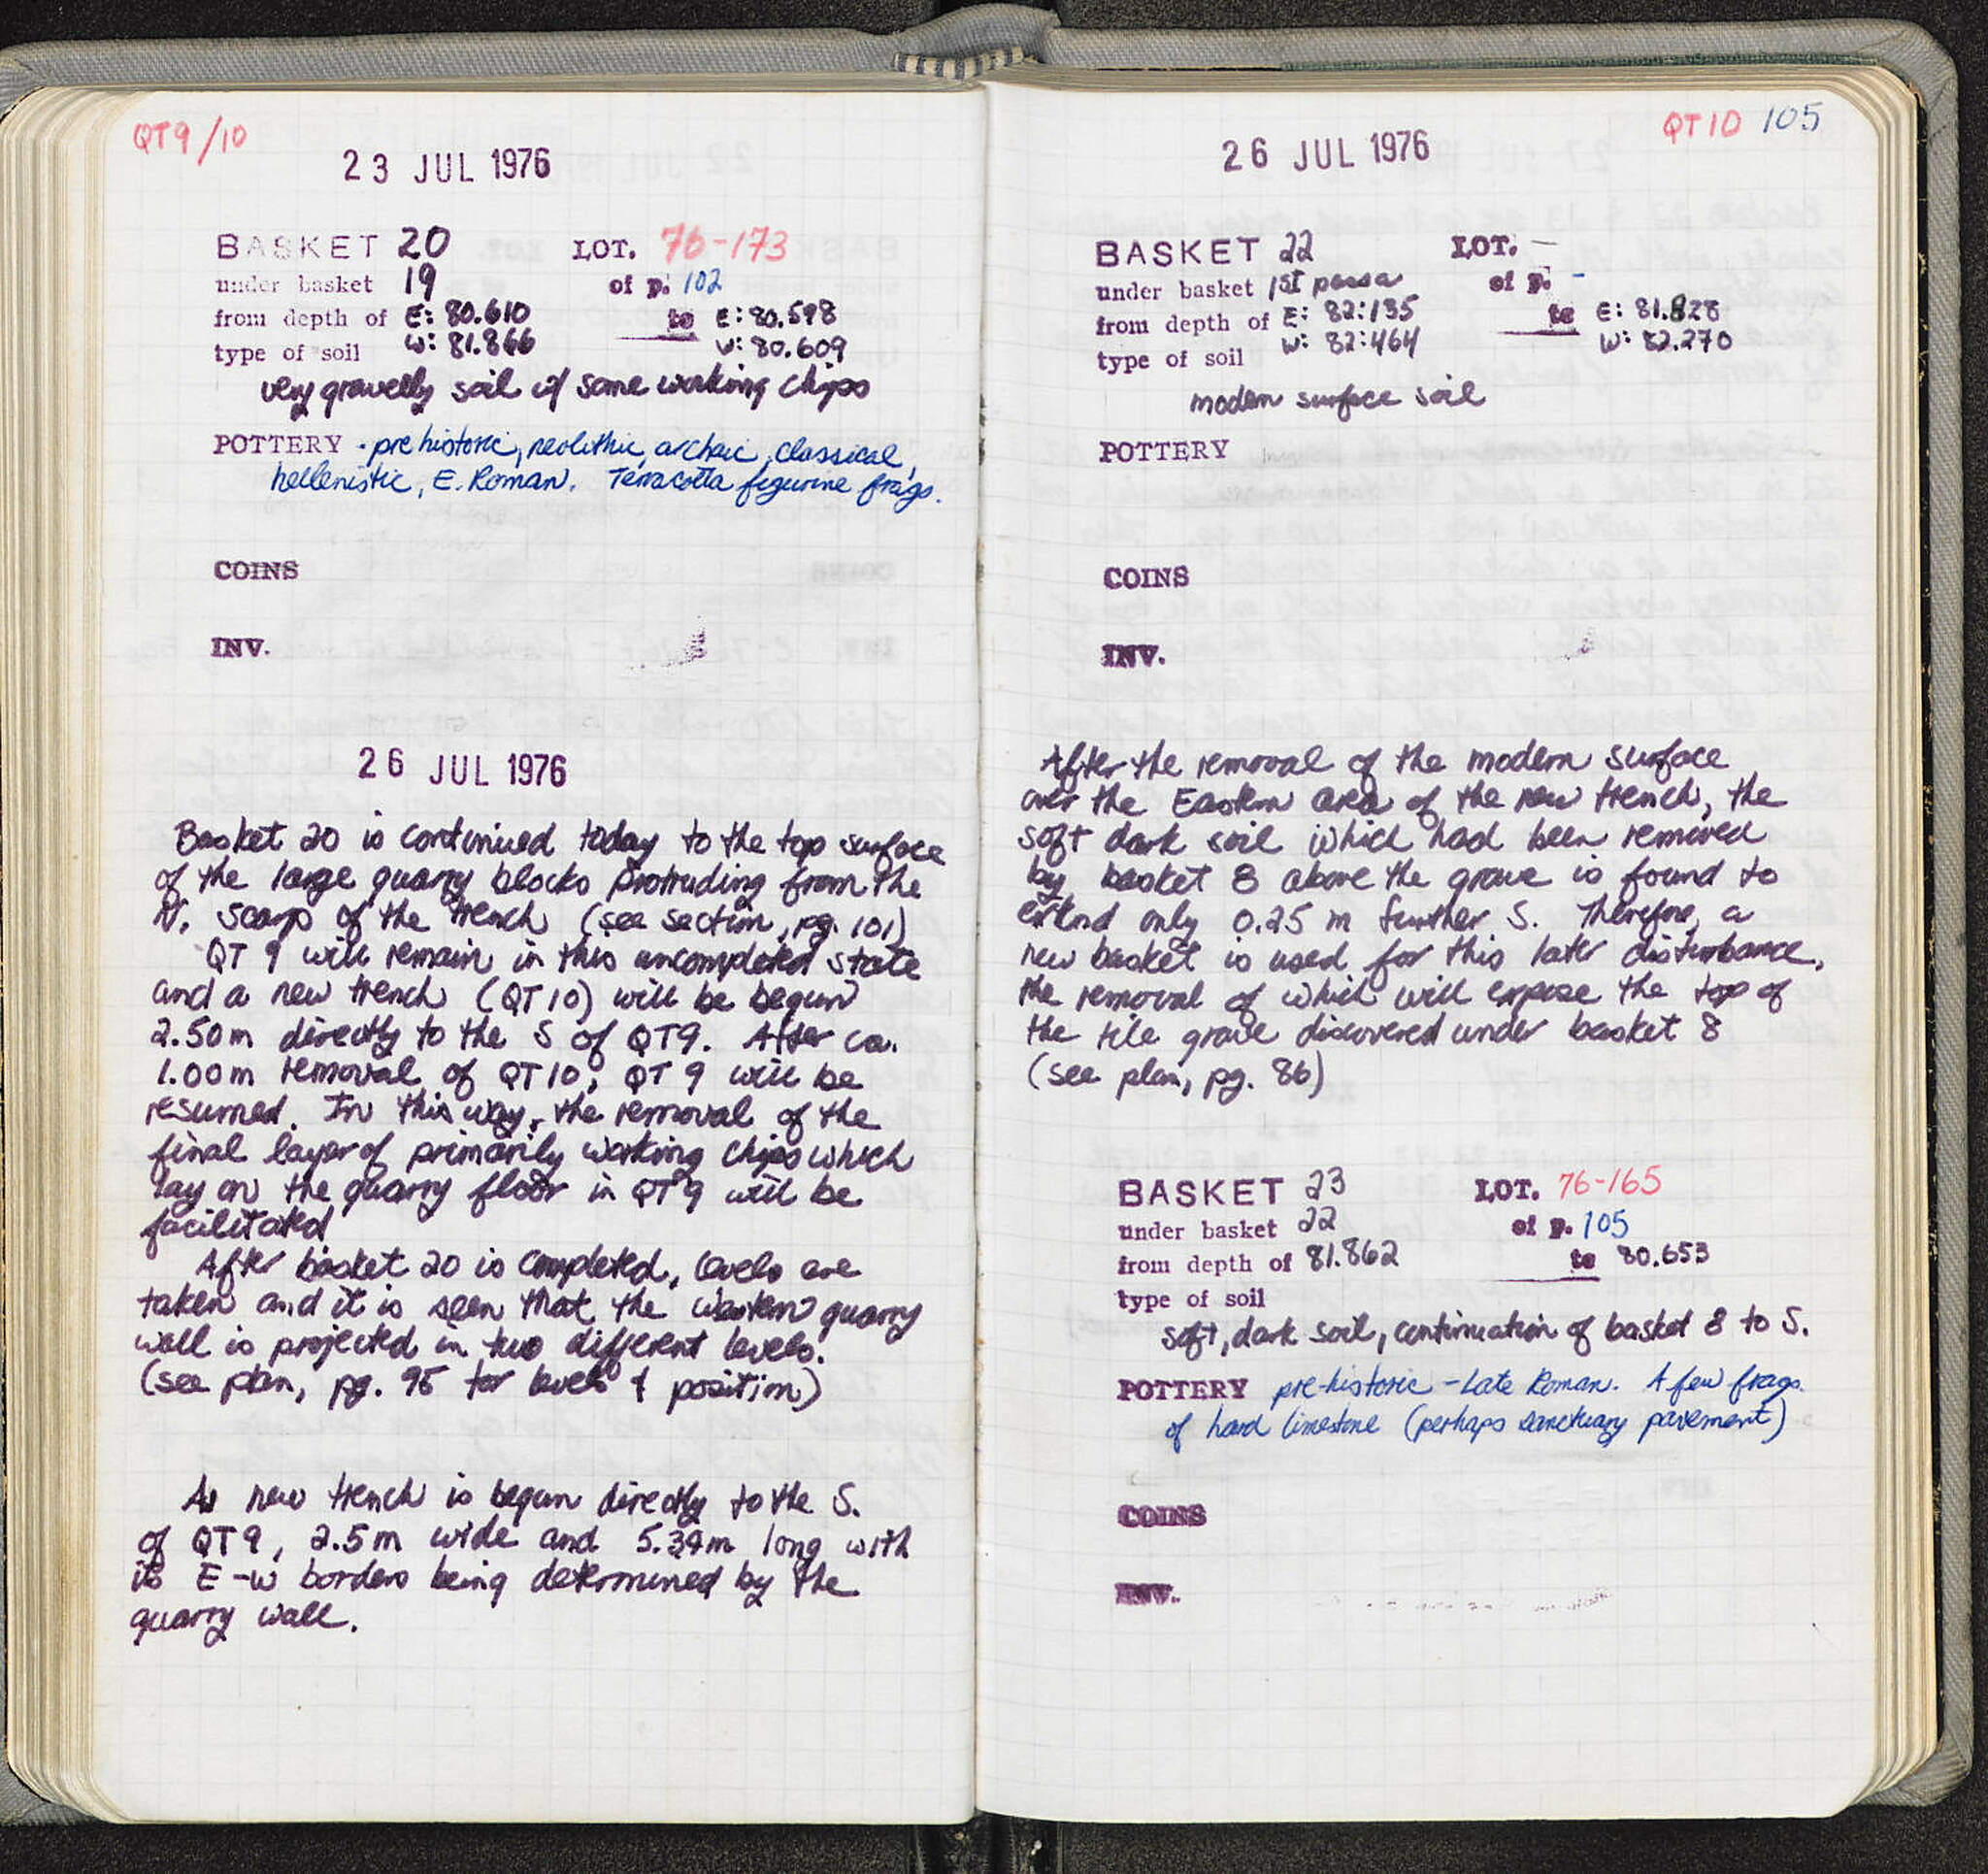 QT9/10
23 JUL 1976
BASKET 20 LOT. 76-173
under basket 19 of p. 102
from depth of E: 80.610 to E: 80.598
type of soil W: 81.866 W: 80.609
very gravelly soil w/ some working chips
POTTERY · prehistoric, neolithic, archaic, classical,
hellenistic, E. Roman. Terracotta figurine frags.
COINS
INV.
26 JUL 1976
Basket 20 is continued today to the top surface
of the large quarry blocks protruding from the
N. scarp of the trench (see section, pg. 101)
QT 9 will remain in this uncompleted state
and a new trench (QT10) will be begun
2.50m directly to the S of QT9. After ca.
1.00m removal of QT10, QT9 will be
resumed. In this way, the removal of the
final layer of primarily working chips which
lay on the quarry floor in QT9 will be
facilitated
After basket 20 is completed, levels are
taken and it is seen that the western quarry
wall is projected in two different levels.
(see plan, pg. 95 for levels & position)
A new trench is begun directly to the S.
of QT9, 2.5m wide and 5.39m long with
its E-W borders being determined by the
quarry wall.
QT10 105
26 JUL 1976
BASKET 22 LOT. —
under basket 1st passa of p. -
from depth of E: 82:135 to E: 81.828
type of soil W: 82:464 W: 82.270
modern surface soil
POTTERY
COINS
INV.
After the removal of the modern surface
over the Eastern area of the new trench, the
soft dark soil which had been removed
by basket 8 above the grave is found to
extend only 0.25 m further S. Therefore, a
new basket is used for this later disturbance,
the removal of which will expose the top of
the tile grave discovered under basket 8
(see plan, pg. 86)
BASKET 23 LOT. 76-165
under basket 22 of p. 105
from depth of 81.862 to 80.653
type of soil
soft, dark soil, continuation of basket 8 to S.
POTTERY pre-historic - Late Roman. A few frags.
of hard limestone (perhaps sanctuary pavement)
COINS
INV.